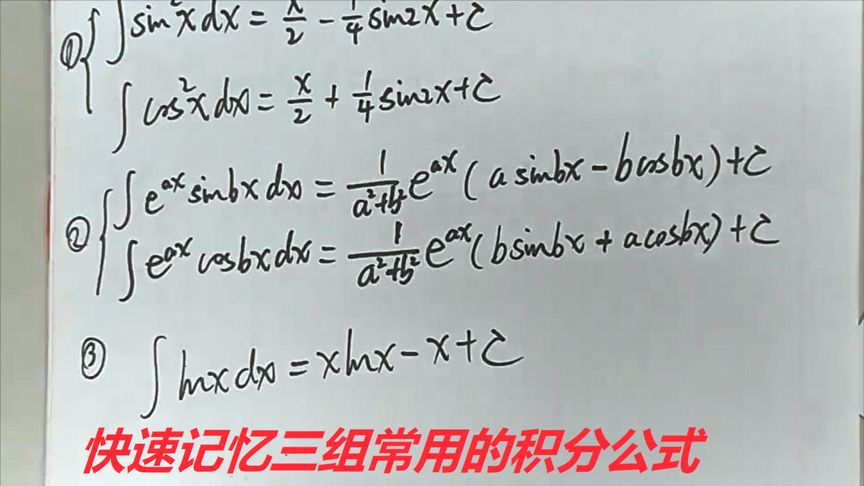 ① ∫sin²xdx = x/2 - 1/4 sin2x + C
∫cos²xdx = x/2 + 1/4 sin2x + C
② ∫e^{ax} sinbx dx = 1/(a²+b²) e^{ax} (a sinbx - b cosbx) + C
∫e^{ax} cosbx dx = 1/(a²+b²) e^{ax} (b sinbx + a cosbx) + C
③ ∫lnx dx = xlnx - x + C
快速记忆三组常用的积分公式